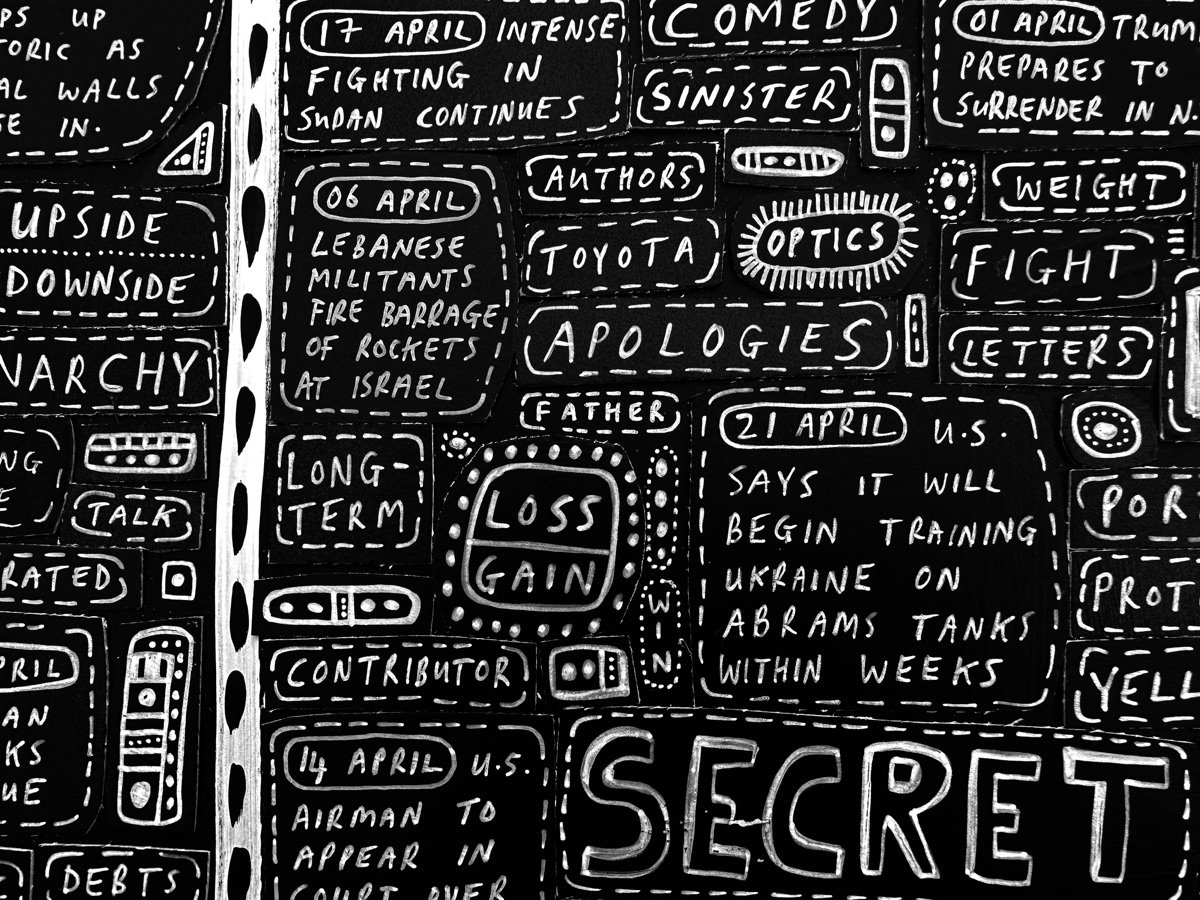 UPS UP
TORIC AS
AL WALLS
SE IN.
UPSIDE
DOWNSIDE
NARCHY
NG
E
TALK
RATED
PRIL
AN
KS
UE
DEBTS
17 APRIL INTENSE
FIGHTING IN
SUDAN CONTINUES
06 APRIL
LEBANESE
MILITANTS
FIRE BARRAGE
OF ROCKETS
AT ISRAEL
LONG-
TERM
LOSS
GAIN
CONTRIBUTOR
14 APRIL U.S.
AIRMAN TO
APPEAR IN
COURT OVER
COMEDY
SINISTER
AUTHORS
TOYOTA
OPTICS
APOLOGIES
FATHER
WIN
21 APRIL U.S.
SAYS IT WILL
BEGIN TRAINING
UKRAINE ON
ABRAMS TANKS
WITHIN WEEKS
SECRET
01 APRIL TRUM
PREPARES TO
SURRENDER IN N.
WEIGHT
FIGHT
LETTERS
POR
PROT
YELL